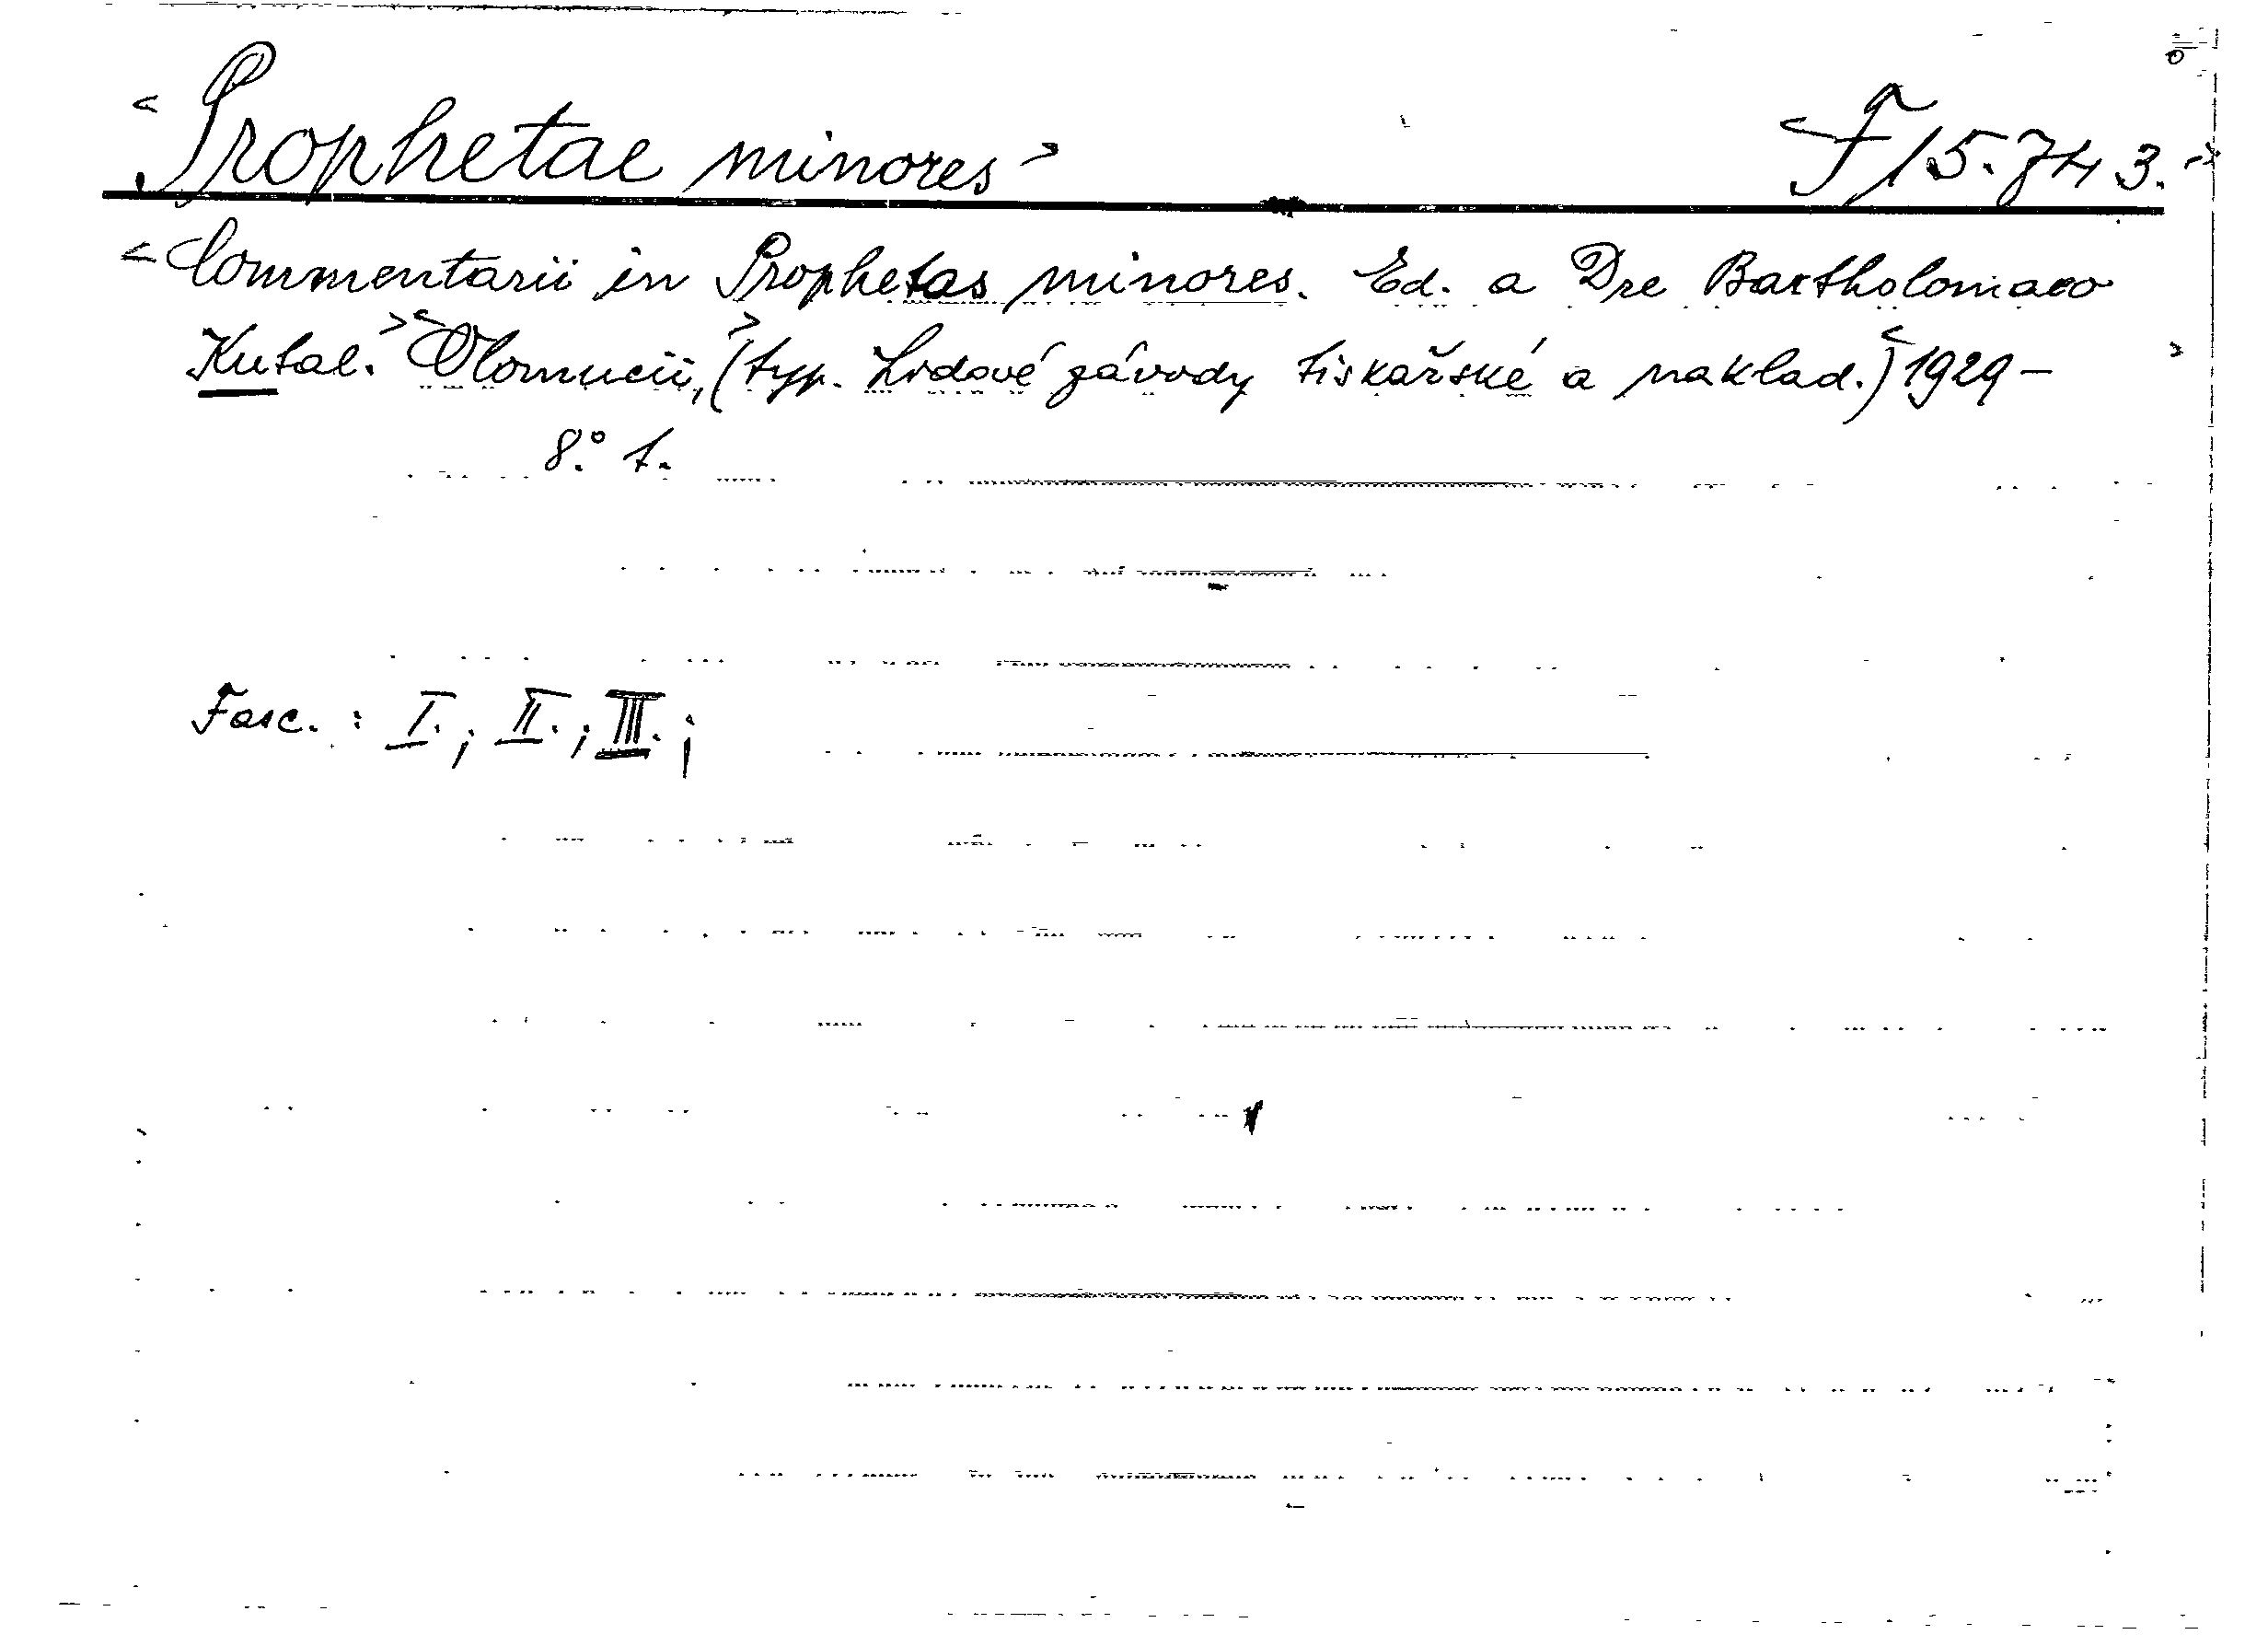 <Prophetae minores> <F 15.743.>
<Commentarii in Prophetas minores. Ed. a Dre Bartholomaeo
Kutal.> <Olomucii,> (typ. Lidové závody tiskařské a naklad.) <1929– >
8.° t.
Fasc. : I. ; II. ; III. ;